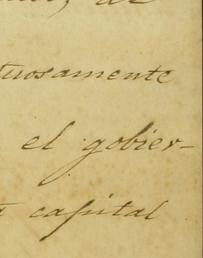 de
tuosamente
el gobier-
capital